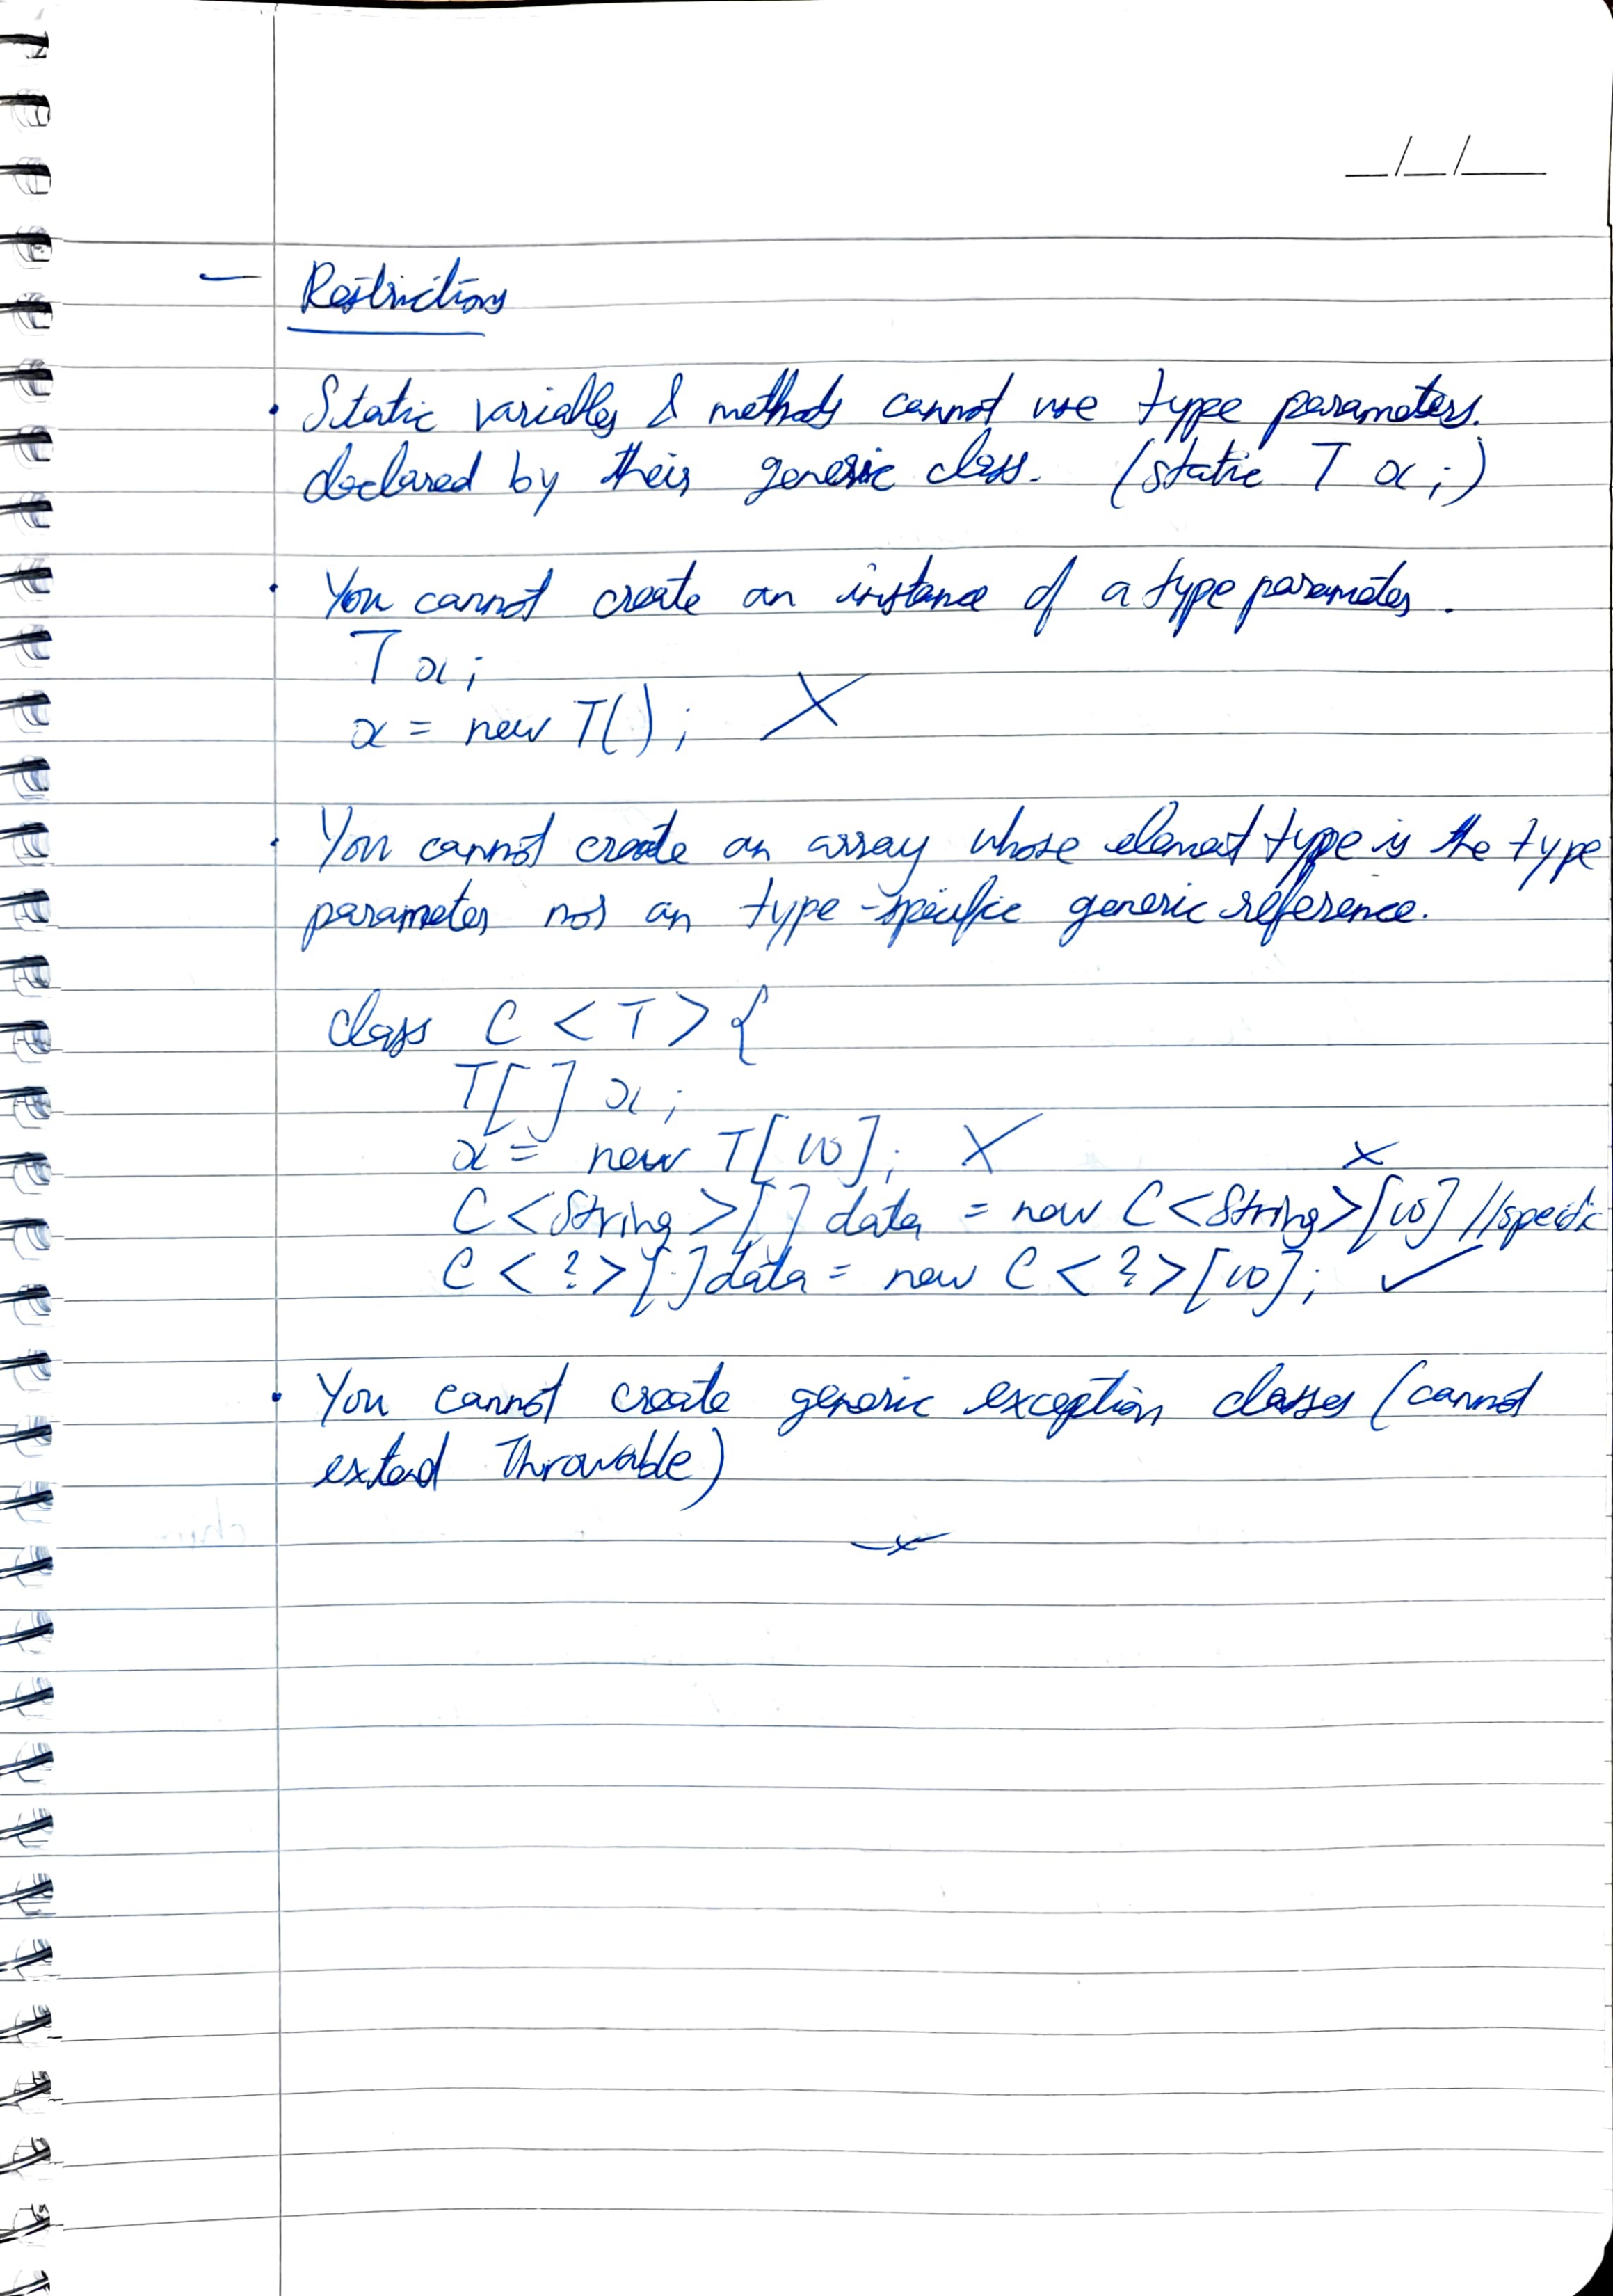 _/_/__
— Restrictions
• Static variables & methods cannot use type parameters.
declared by their generic class. (static T x;)
• You cannot create an instance of a type parameter.
T x;
x = new T(); X
• You cannot create an array whose element type is the type
parameter nor an type-specific generic reference.
class C <T> {
T[] x;
x = new T[10]; X
X
C<String>[] data = new C<String>[10] //specific
C<?>[] data = new C<?>[10]; ✓
• You cannot create generic exception classes (cannot
extend Throwable)